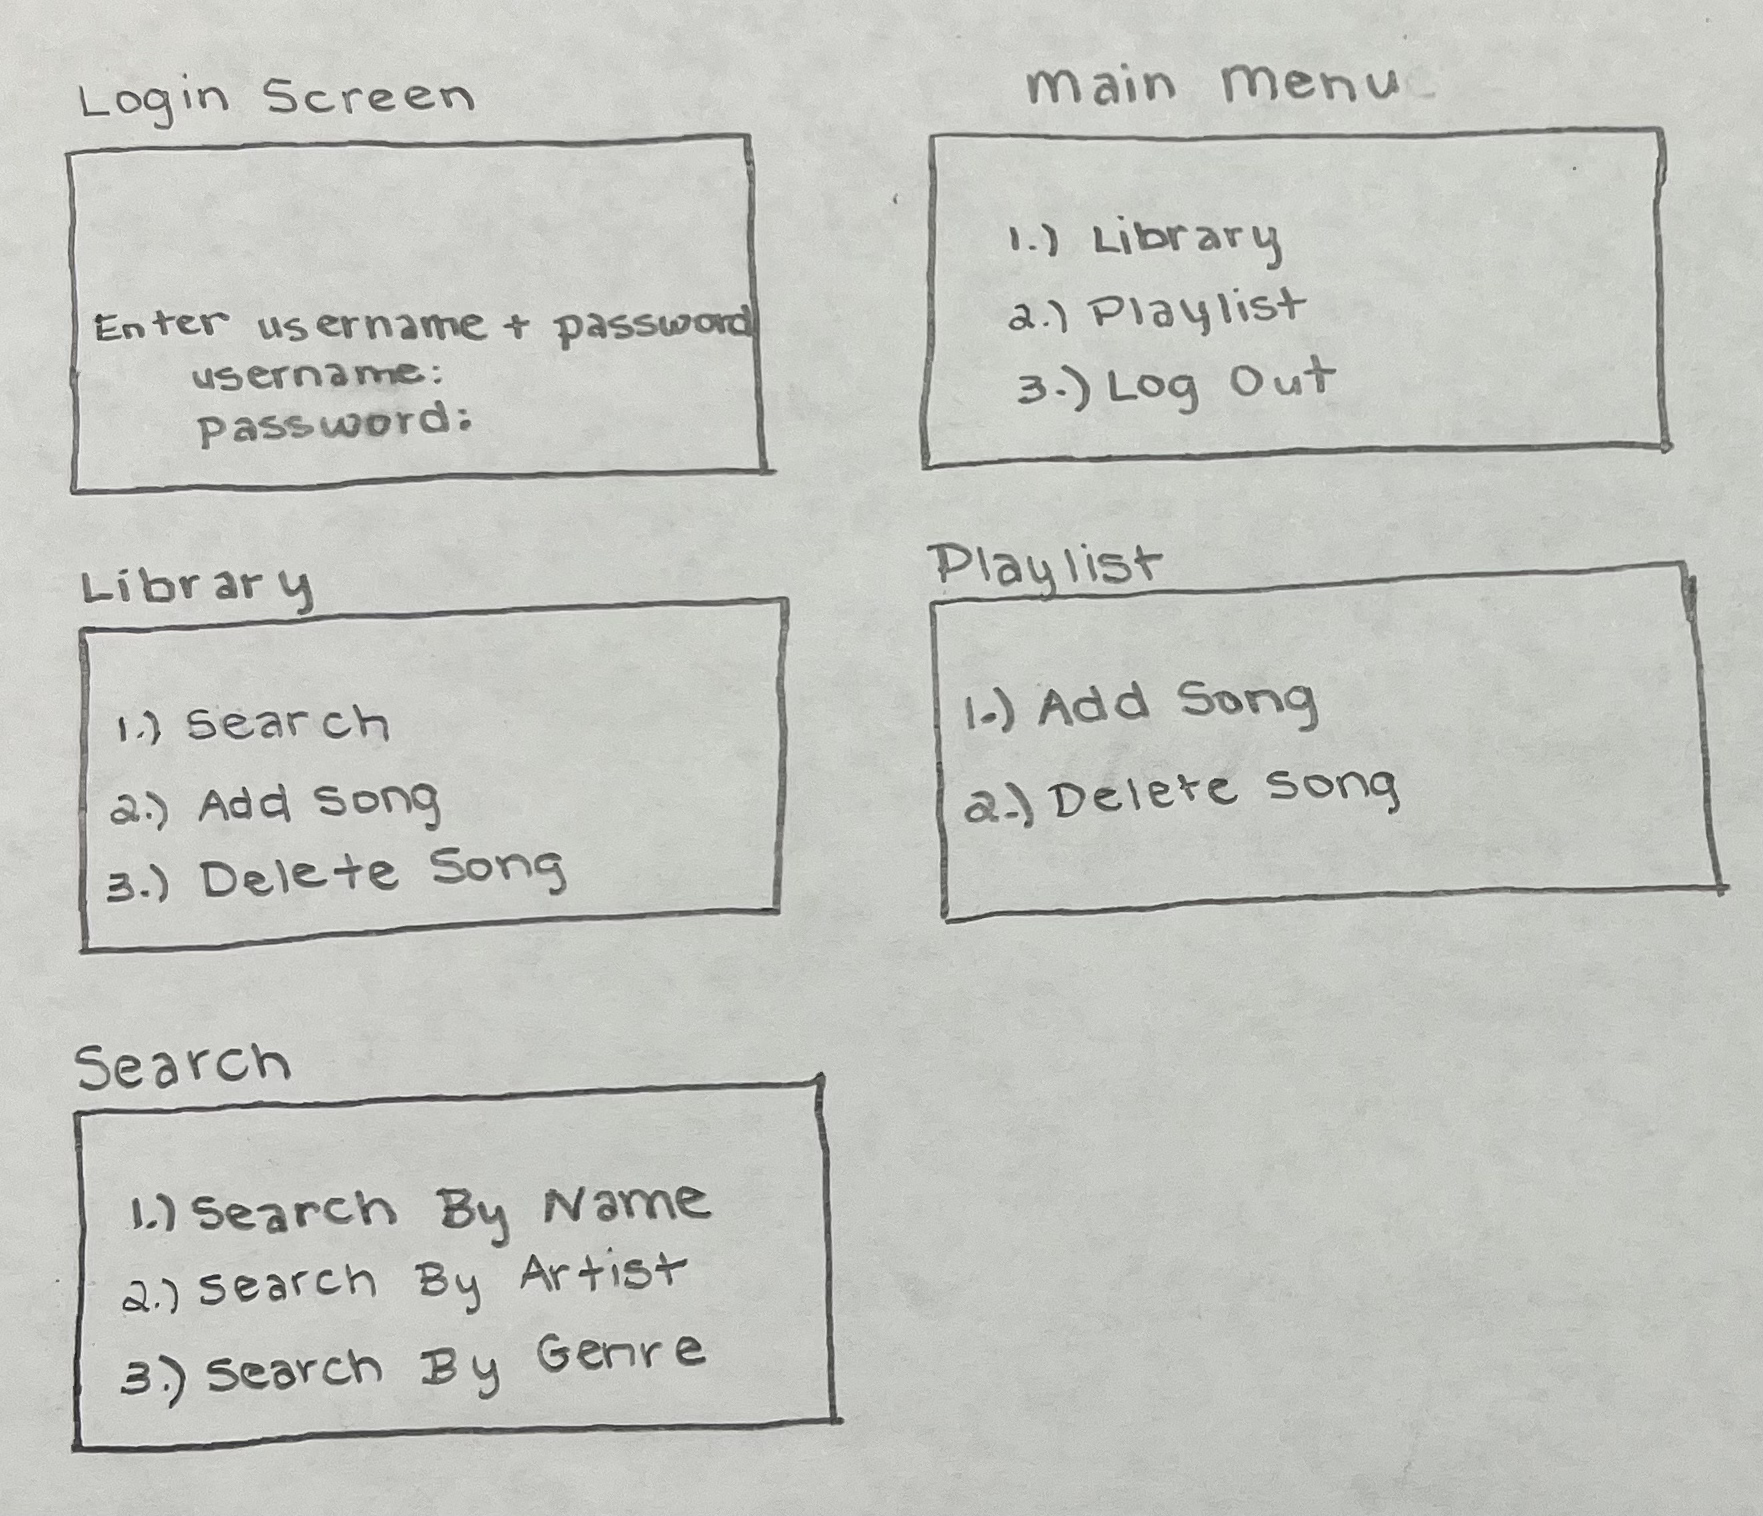 Login Screen
Enter username + password
username:
password:
Main Menu
1.) Library
2.) Playlist
3.) Log Out
Library
1.) Search
2.) Add Song
3.) Delete Song
Playlist
1.) Add Song
2.) Delete Song
Search
1.) Search By Name
2.) Search By Artist
3.) Search By Genre